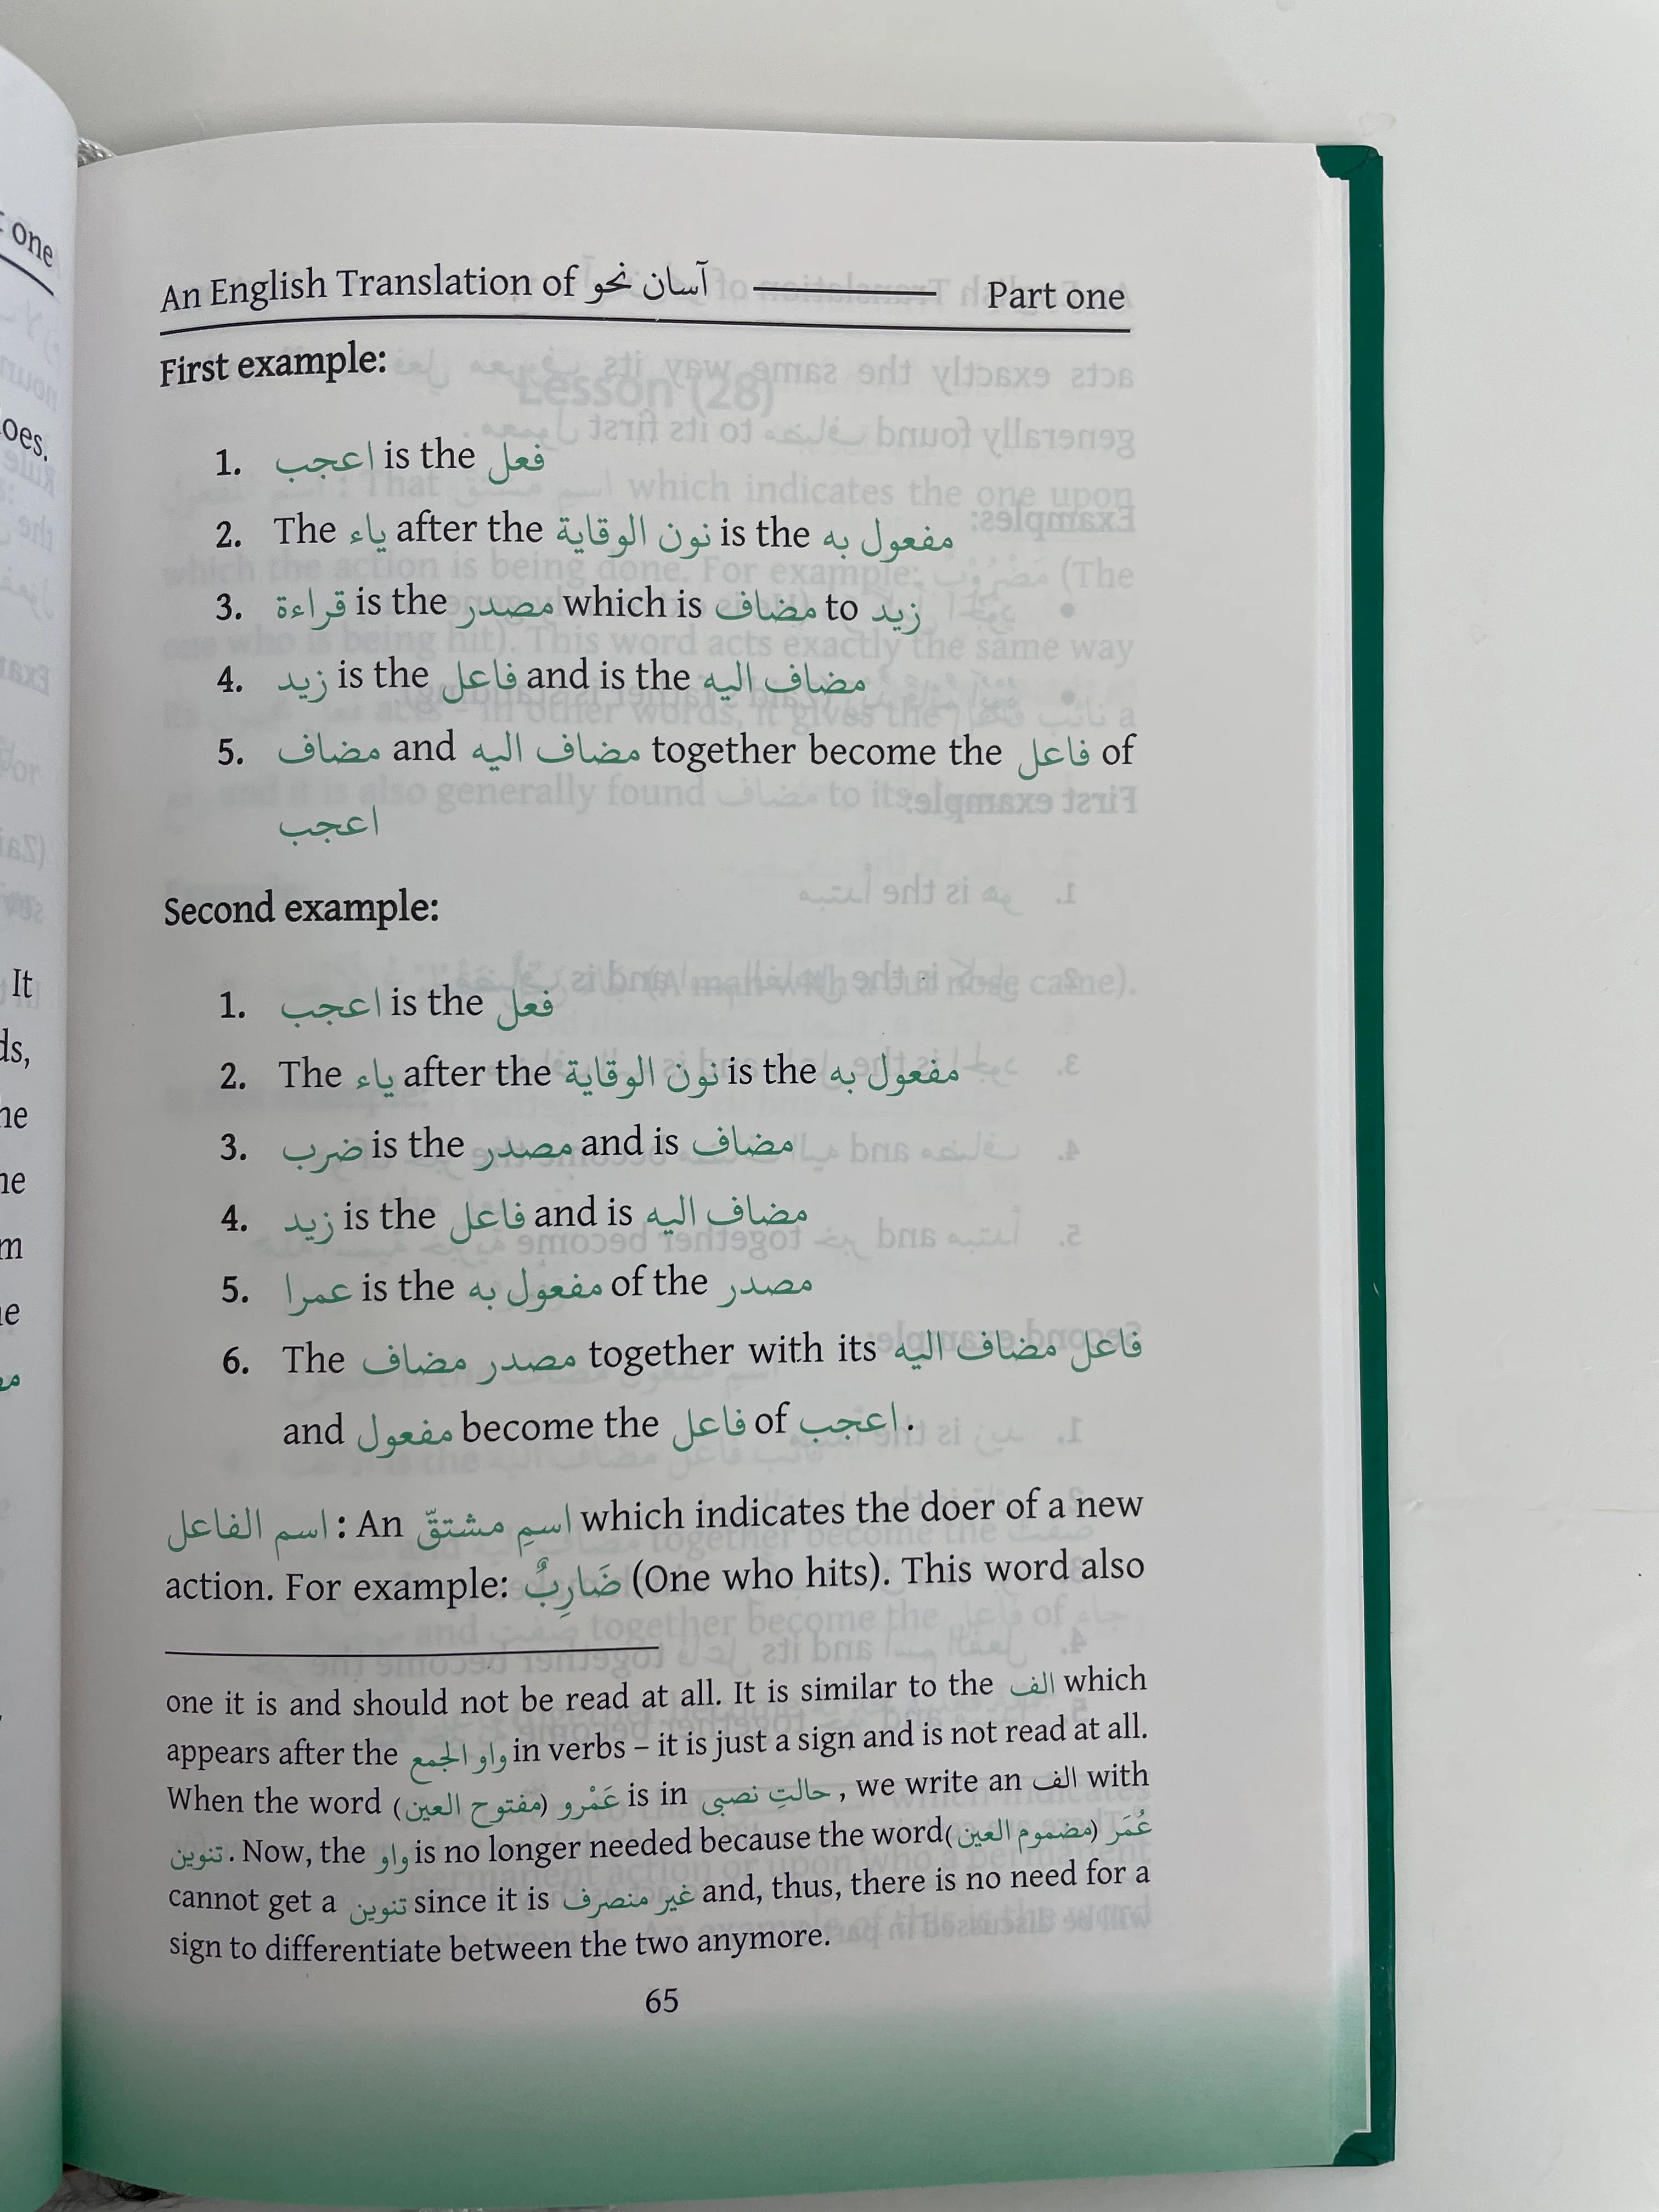 An English Translation of آسان نحو Part one
First example:
1. اعجب is the فعل
2. The ياء after the نون الوقاية is the مفعول به
3. قراءة is the مصدر which is مضاف to زيد
4. زيد is the فاعل and is the مضاف اليه
5. مضاف and مضاف اليه together become the فاعل of
اعجب
Second example:
1. اعجب is the فعل
2. The ياء after the نون الوقاية is the مفعول به
3. ضرب is the مصدر and is مضاف
4. زيد is the فاعل and is مضاف اليه
5. عمرا is the مفعول به of the مصدر
6. The مصدر مضاف together with its فاعل مضاف اليه
and مفعول become the فاعل of اعجب.
اسم الفاعل: An اسمِ مشتقّ which indicates the doer of a new
action. For example: ضَارِبٌ (One who hits). This word also
one it is and should not be read at all. It is similar to the الف which
appears after the واو الجمع in verbs – it is just a sign and is not read at all.
When the word عَمْرو (مفتوح العين) is in حالتِ نصبی, we write an الف with
تنوين. Now, the واو is no longer needed because the word عُمَر (مضموم العين)
cannot get a تنوين since it is غير منصرف and, thus, there is no need for a
sign to differentiate between the two anymore.
65